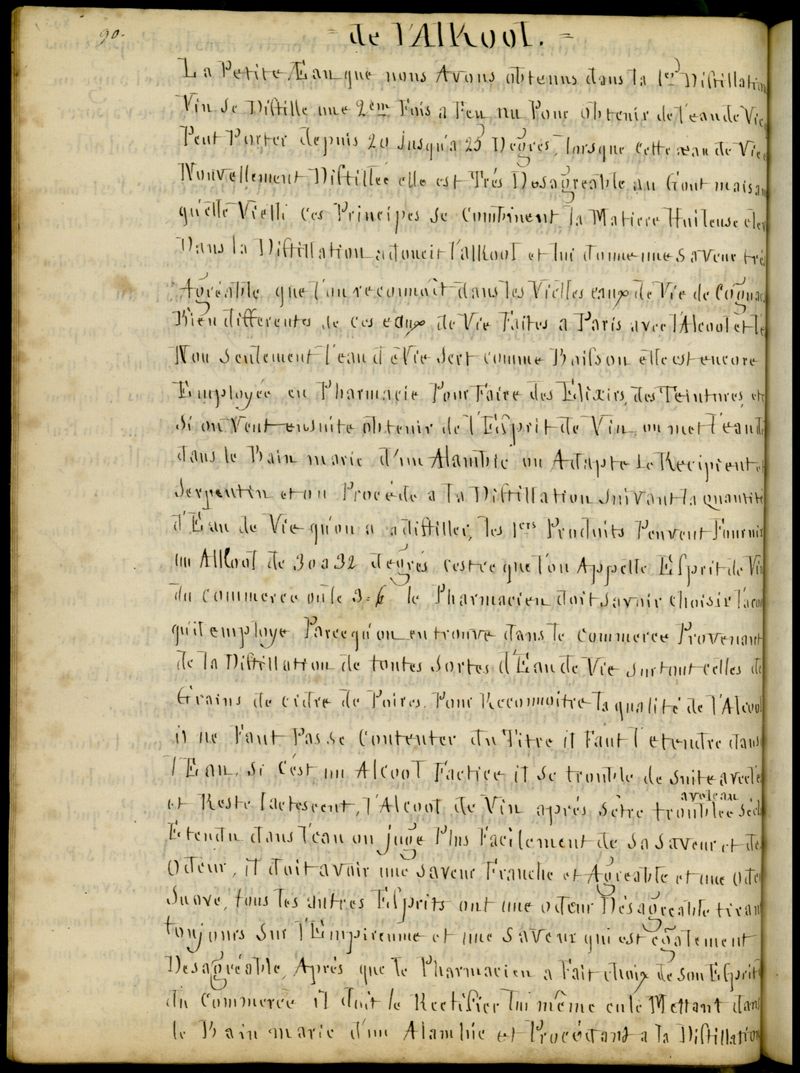 90.
- de l'AlKool. -
La Petite Eau que nous Avons obtenus dans la 1ere Distillation
Vin se Distille une 2eme Fois a Feu nu Pour obtenir de l'eau de Vie
Peut Porter depuis 20 jusqu'a 25 Degrés, lorsque cette eau de Vie
Nouvellement Distillée elle est Très Desagreable au Gout mais a
qu'elle Vielli Ces Principes se Combinent, la Matiere Huileuse
Dans la Distillation adoucit l'alKool et lui donne une Saveur trè
Agréable que l'on reconnait dans les Vielles eaux de Vie de Cognac
Bien differentes de ces eaux de Vie Faites a Paris avec l'Alcool et l'e
Non Seulement l'eau de Vie Sert Comme Boisson elle est encore
Employée en Pharmacie Pour Faire des Elixirs, des Teintures, et
Si on Veut ensuite obtenir de l'Esprit de Vin, on met l'eau d
dans le Bain marie d'un Alambic on Adapte Le Recipient e
Serpentin et on Procéde a la Distillation Suivant la quantité
d'Eau de Vie qu'on a a distiller, les 1ers Produits Peuvent Fournir
un AlKool de 30 a 32 degrés c'est ce que l'on Appelle Esprit de Vin
du Commerce ou le 3-6 le Pharmacien doit Savoir Choisir l'acool
qu'il employe Parcequ'on en trouve dans le Commerce Provenant
de la Distillation de toutes Sortes d'Eau de Vie Surtout celles de
Grains de cidre de Poires, Pour Reconnoitre la qualité de l'Alcool
il ne Faut Pas se Contenter du Titre il Faut l'etendre dans
l'Eau, Si C'est un Alcool Factice il Se trouble de Suite avec l'e
et Reste lactescent, l'Alcool de Vin aprés Sêtre troublée Sé
avec l'eau
Etendu dans l'eau on juge Plus Facilement de Sa Saveur et de
Odeur, il doit avoir une Saveur Franche et Agreable et une Ode
Suave, tous les autres Esprits ont une odeur Désagreable tirant
toujours Sur l'Empireume et une Saveur qui est également
Desagréable, Aprés que le Pharmacien a Fait choix de Son Esprit
du Commerce il doit le Rectifier lui même en le Mettant dans
le Bain marie d'un Alambic et Procédant a la Distillation